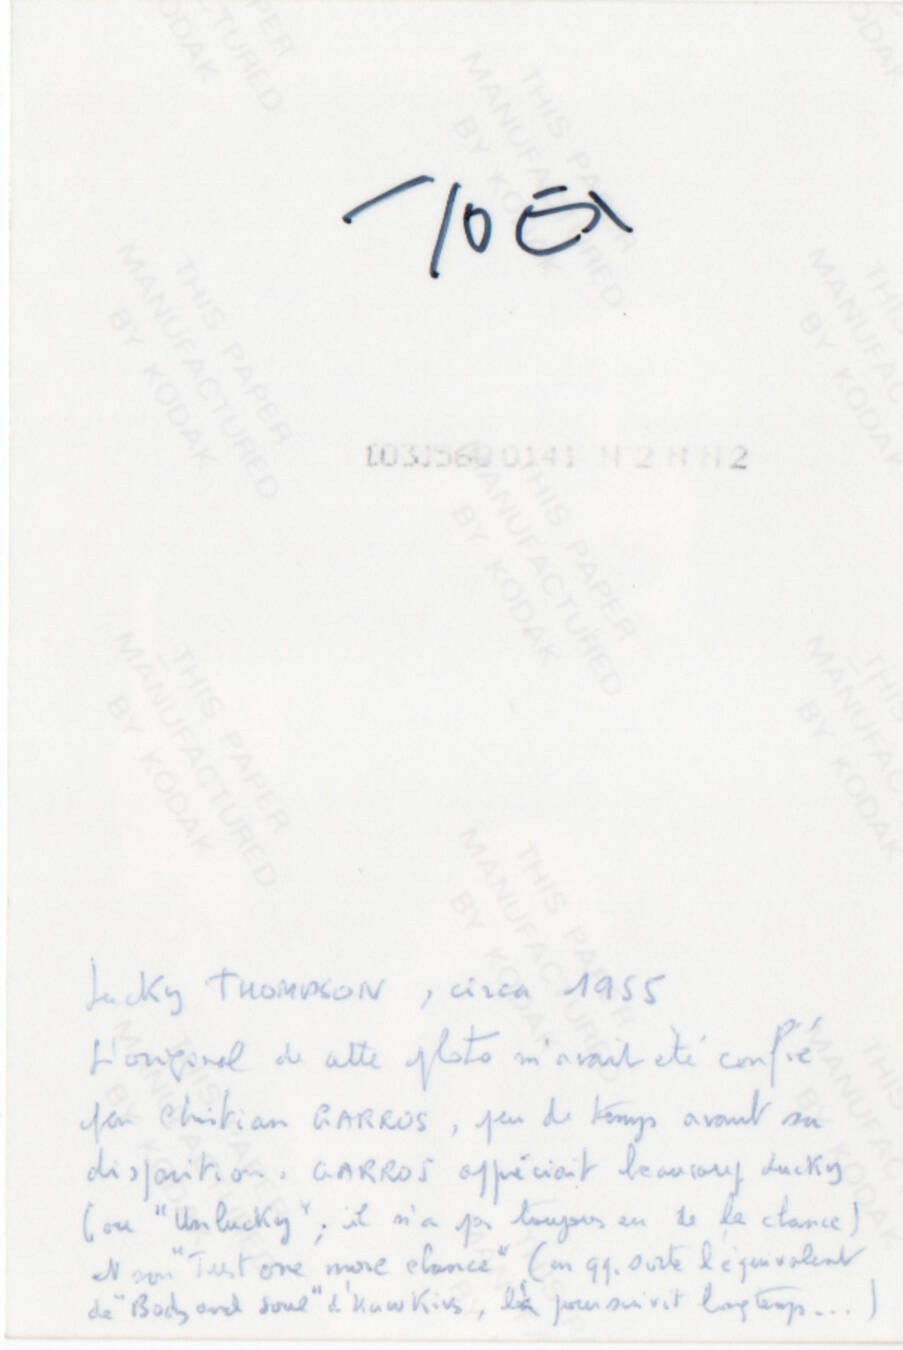 THIS PAPER
MANUFACTURED
BY KODAK
0141 N 2 N N 2
Lucky THOMPSON, circa 1955
L'original de cette photo m'avait été confié
par Christian GARROS, peu de temps avant sa
disparition. GARROS appréciait beaucoup Lucky
(ou "Unlucky", il n'a pas toujours eu de la chance)
et son "Just one more chance" (en qq. sorte l'équivalent
de "Body and soul" d'Hawkins, poursuivit longtemps...)